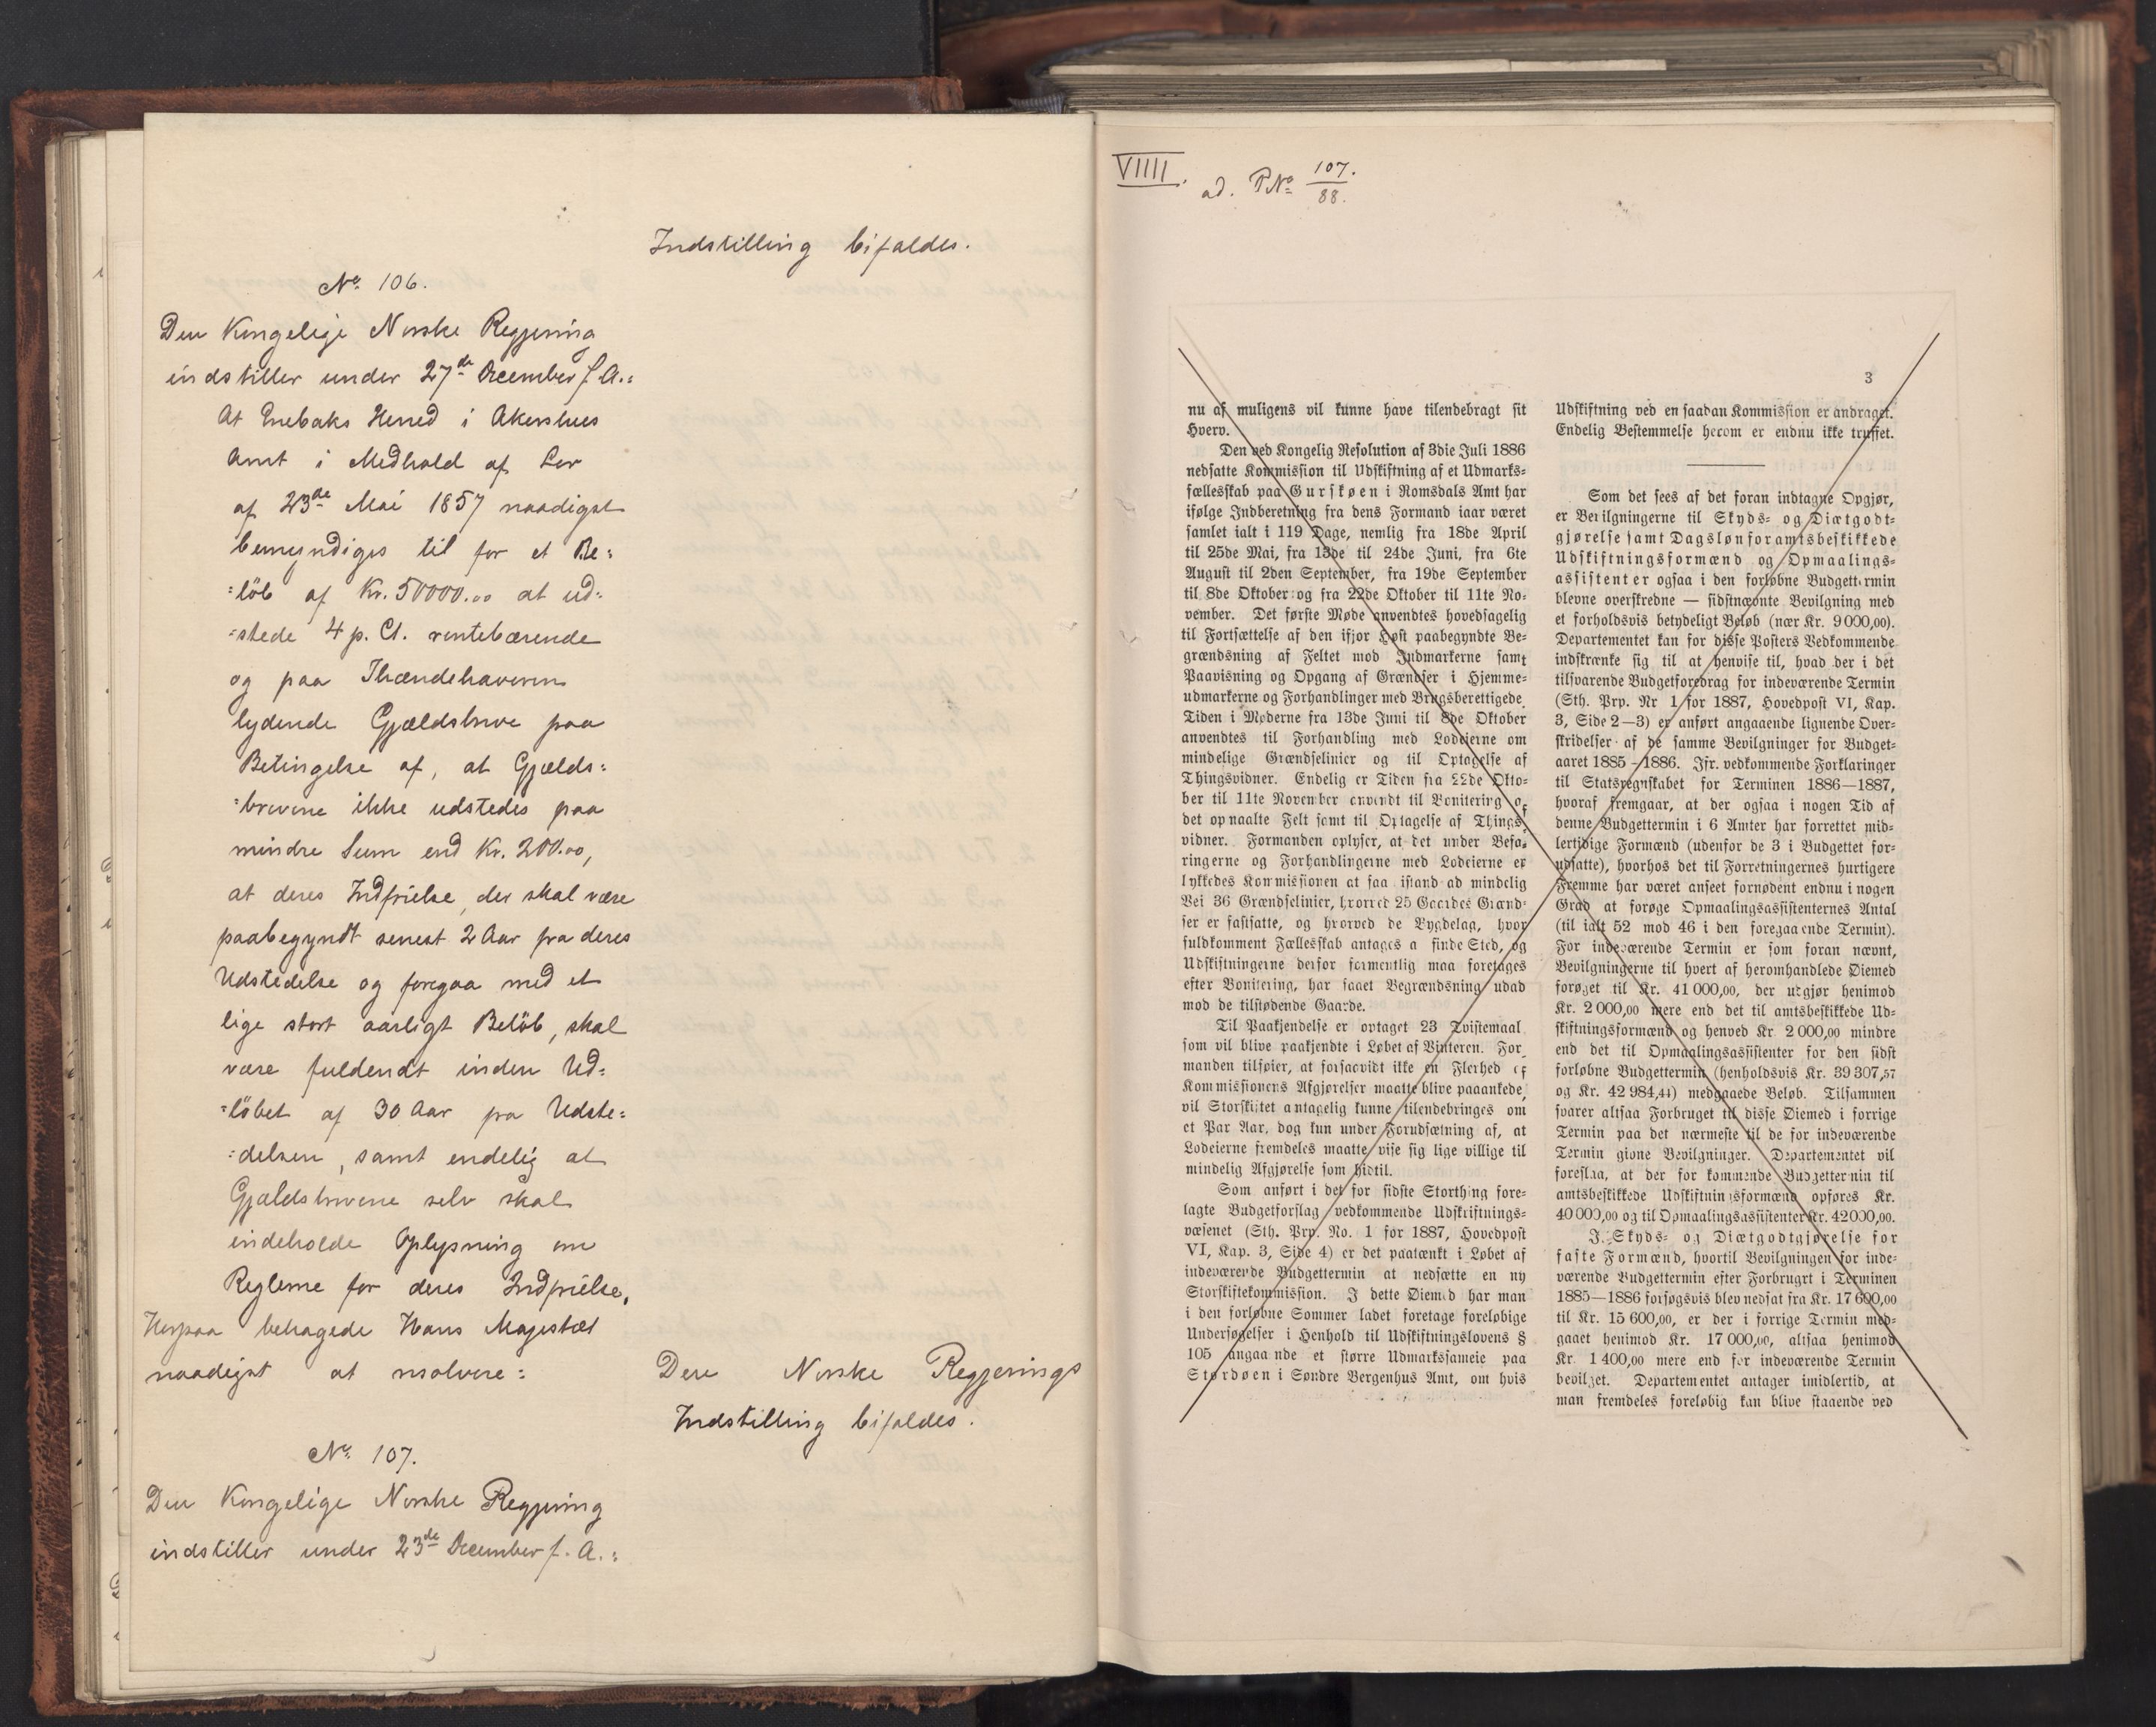 Indstilling bifaldes.
No. 106.
Den Kongelige Norske Regjering
indstiller under 27de December f. A.:
At Enebaks Herred i Akershus
Amt i Medhold af Lov
af 23de Mai 1857 naadigst
bemyndiges til for et Be:
:löb af Kr. 50000.00 at ud:
:stede 4 p. Ct. rentebærende
og paa Ihændehaveren
lydende Gjældsbreve paa
Betingelse af, at Gjælds:
:brevene ikke udstedes paa
mindre Sum end Kr. 200.00,
at deres Indfrielse, der skal være
paabegyndt senest 2 Aar fra deres
Udstedelse og foregaa med et
lige stort aarligt Belöb, skal
være fuldendt inden Ud:
:löbet af 30 Aar fra Udste:
:delsen, samt endelig at
Gjældsbrevene selv skal
indeholde Oplysning om
Reglerne for deres Indfrielse,
Herpaa behagede Hans Majestæt
naadigst at resolvere:
Den Norske Regjerings
Indstilling bifaldes.
No. 107.
Den Kongelige Norske Regjering
indstiller under 23de December f. A.:
VIIII. ad. PNo 107./88.
3
nu af muligens vil kunne have tilendebragt sit
Hverv.
Den ved Kongelig Resolution af 3die Juli 1886
nedsatte Kommission til Udskiftning af et Udmarks-
fællesskab paa Gurskøen i Romsdals Amt har
ifølge Indberetning fra dens Formand iaar været
samlet ialt i 119 Dage, nemlig fra 18de April
til 25de Mai, fra 13de til 24de Juni, fra 6te
August til 2den September, fra 19de September
til 8de Oktober og fra 22de Oktober til 11te No-
vember. Det første Møde anvendtes hovedsagelig
til Fortsættelse af den ifjor Høst paabegyndte Be-
grændsning af Feltet mod Indmarkerne samt
Paavisning og Opgang af Grændser i Hjemme-
udmarkerne og Forhandlinger med Brugsberettigede.
Tiden i Møderne fra 13de Juni til 8de Oktober
anvendtes til Forhandling med Lodeierne om
mindelige Grændselinier og til Optagelse af
Thingsvidner. Endelig er Tiden fra 22de Okto-
ber til 11te November anvendt til Bonitering of
det opmaalte Felt samt til Optagelse af Things-
vidner. Formanden oplyser, at det under Befa-
ringerne og Forhandlingerne med Lodeierne er
lykkedes Kommissionen at faa istand ad mindelig
Vei 36 Grændselinier, hvorved 25 Gaardes Grænd-
ser er fastsatte, og hvorved de Bygdelag, hvor
fuldkomment Fællesskab antages a finde Sted, og
Udskiftningerne derfor formentlig maa foretages
efter Bonitering, har faaet Begrændsning udad
mod de tilstødende Gaarde.
Til Paakjendelse er optaget 23 Tvistemaal
som vil blive paakjendte i Løbet af Vinteren. For-
manden tilføier, at forsaavidt ikke en Flerhed af
Kommissionens Afgjørelser maatte blive paaankede,
vil Storskiftet antagelig kunne tilendebringes om
et Par Aar, dog kun under Forudsætning af, at
Lodeierne fremdeles maatte vise sig lige villige til
mindelig Afgjørelse som hidtil.
Som anført i det for sidste Storthing fore-
lagte Budgetforslag vedkommende Udskriftnings-
væsenet (Sth. Prp. No. 1 for 1887, Hovedpost
VI, Kap. 3, Side 4) er det paatænkt i Løbet af
indeværende Budgettermin at nedsætte en ny
Storskiftekommission. I dette Øiemed har man
i den forløbne Sommer ladet foretage foreløbige
Undersøgelser i Henhold til Udskiftningslovens §
105 angaaende et større Udmarkssameie paa
Stordøen i Søndre Bergenhus Amt, om hvis
Udskiftning ved en saadan Kommission er andraget.
Endelig Bestemmelse herom er endnu ikke truffet.
Som det sees af det foran indtagne Opgjør,
er Bevilgningerne til Skyds- og Diætgodt-
gjørelse samt Dagsløn for amtsbeskikkede
Udskiftningsformænd og Opmaalings-
assistenter ogsaa i den forløbne Budgettermin
blevne overskredne — sidstnævnte Bevilgning med
et forholdsvis betydeligt Beløb (nær Kr. 9 000,00).
Departementet kan for disse Posters Vedkommende
indskrænke sig til at henvise til, hvad der i det
tilsvarende Budgetforedrag for indeværende Termin
(Sth. Prp. Nr 1 for 1887, Hovedpost VI, Kap.
3, Side 2—3) er anført angaaende lignende Over-
skridelser af de samme Bevilgninger for Budget-
aaret 1885-1886. Jfr. vedkommende Forklaringer
til Statsregnskabet for Terminen 1886—1887,
hvoraf fremgaar, at der ogsaa i nogen Tid af
denne Budgettermin i 6 Amter har forrettet mid-
lertidige Formænd (udenfor de 3 i Budgettet for-
udsatte), hvorhos det til Forretningernes hurtigere
Fremme har været anseet fornødent endnu i nogen
Grad at forøge Opmaalingsassistenternes Antal
(til ialt 52 mod 46 i den foregaaende Termin).
For indeværende Termin er som foran nævnt,
Bevilgningerne til hvert af heromhandlede Øiemed
forøget til Kr. 41 000,00, der udgjør henimod
Kr. 2 000,00 mere end det til amtsbeskikkede Ud-
skiftningsformænd og henved Kr 2 000,00 mindre
end det til Opmaalingsassistenter for den sidst
forløbne Budgettermin (henholdsvis Kr. 39 307,57
og Kr. 42 984,44) medgaaede Beløb. Tilsammen
svarer altsaa Forbruget til disse Øiemed i forrige
Termin paa det nærmeste til de for indeværende
Termin givne Bevilgninger. Departementet vil
foreslaa, at der for kommende Budgettermin til
amtsbeskikkede Udskiftningsformænd opføres Kr.
40 000,00 og til Opmaalingsassistenter Kr. 42 000,00.
I. Skyds- og Diætgodtgjørelse for
faste Formænd, hvortil Bevilgningen for inde-
værende Budgettermin efter Forbruget i Terminen
1885—1886 forsøgsvis blev nedsat fra Kr. 17 600,00
til Kr. 15 600,00, er der i forrige Termin med-
gaaet henimod Kr. 17 000,00, altsaa henimod
Kr. 1 400,00 mere end for indeværende Termin
bevilget. Departementet antager imidlertid, at
man fremdeles foreløbig kan blive staaende ved